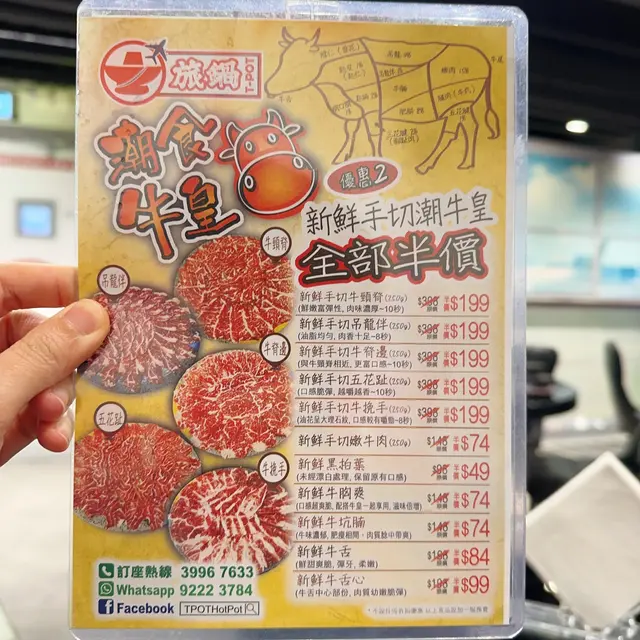 旅鍋
T-POT
潮食
牛皇
優惠2
新鮮手切潮牛皇
全部半價
牛頸脊
吊龍伴
牛脊邊
五花趾
牛挽手
牛舌
新鮮手切牛頸脊(250g) $398 原價 半價 $199
(鮮嫩富彈性, 肉味濃厚~10秒)
新鮮手切吊龍伴(250g) $398 原價 半價 $199
(油脂均勻, 肉香十足~8秒)
新鮮手切牛脊邊(250g) $398 原價 半價 $199
(與牛頸脊相近, 更富口感~10秒)
新鮮手切五花趾(250g) $398 原價 半價 $199
(口感脆彈, 越嚼越香~10秒)
新鮮手切牛挽手(250g) $398 原價 半價 $199
(油花呈大理石紋, 口感較有嚼勁~8秒)
新鮮手切嫩牛肉(250g) $148 原價 半價 $74
新鮮黑柏葉 $98 原價 半價 $49
(未經漂白處理, 保留原有口感)
新鮮牛胸爽 $148 原價 半價 $74
(口感超爽脆, 配搭牛皇一起享用, 滋味倍增)
新鮮牛坑腩 $148 原價 半價 $74
(牛味濃郁, 肥瘦相間, 肉質腍中帶爽)
新鮮牛舌 $168 原價 半價 $84
(鮮甜爽脆, 彈牙, 柔嫩)
新鮮牛舌心 $198 原價 半價 $99
(牛舌中心部份, 肉質幼嫩脆彈)
訂座熱線 3996 7633
Whatsapp 9222 3784
Facebook TPOTHotPot